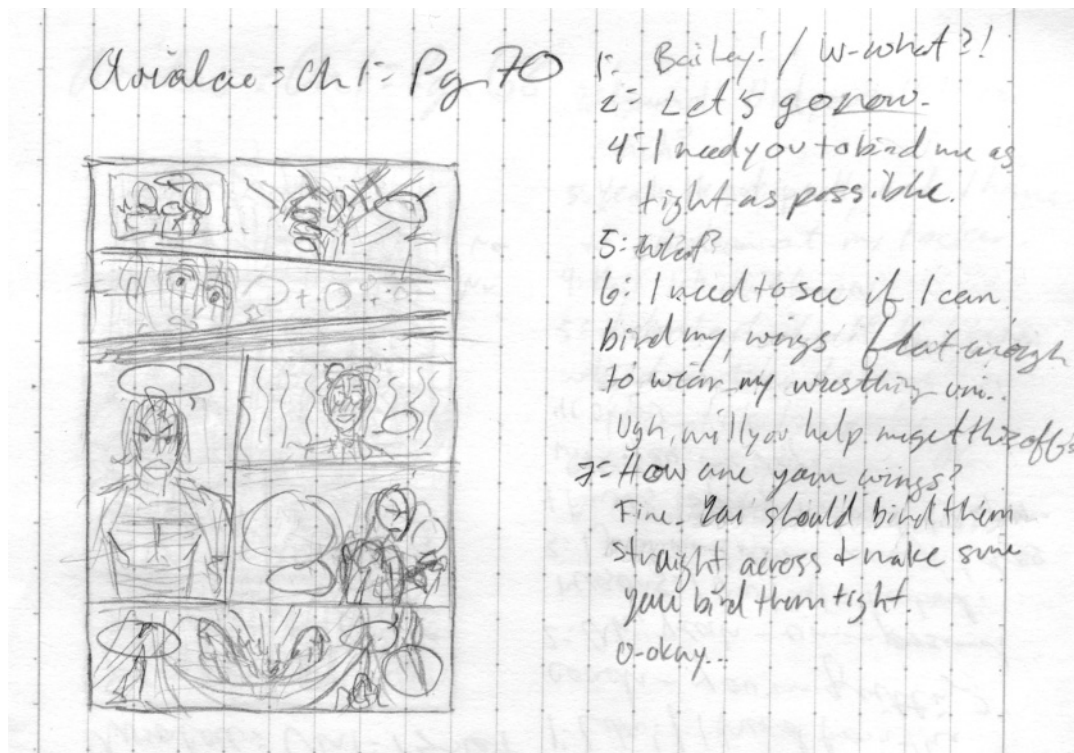 Avialae: Ch 1: Pg 70
1: Bailey! / W-what?!
2: Let's go now.
4: I need you to bind me as
tight as possible.
5: What?
6: I need to see if I can
bind my wings flat enough
to wear my wrestling uni..
Ugh, will you help me get this off
7: How are your wings?
Fine. You should bind them
straight across & make sure
you bind them tight.
O-okay...